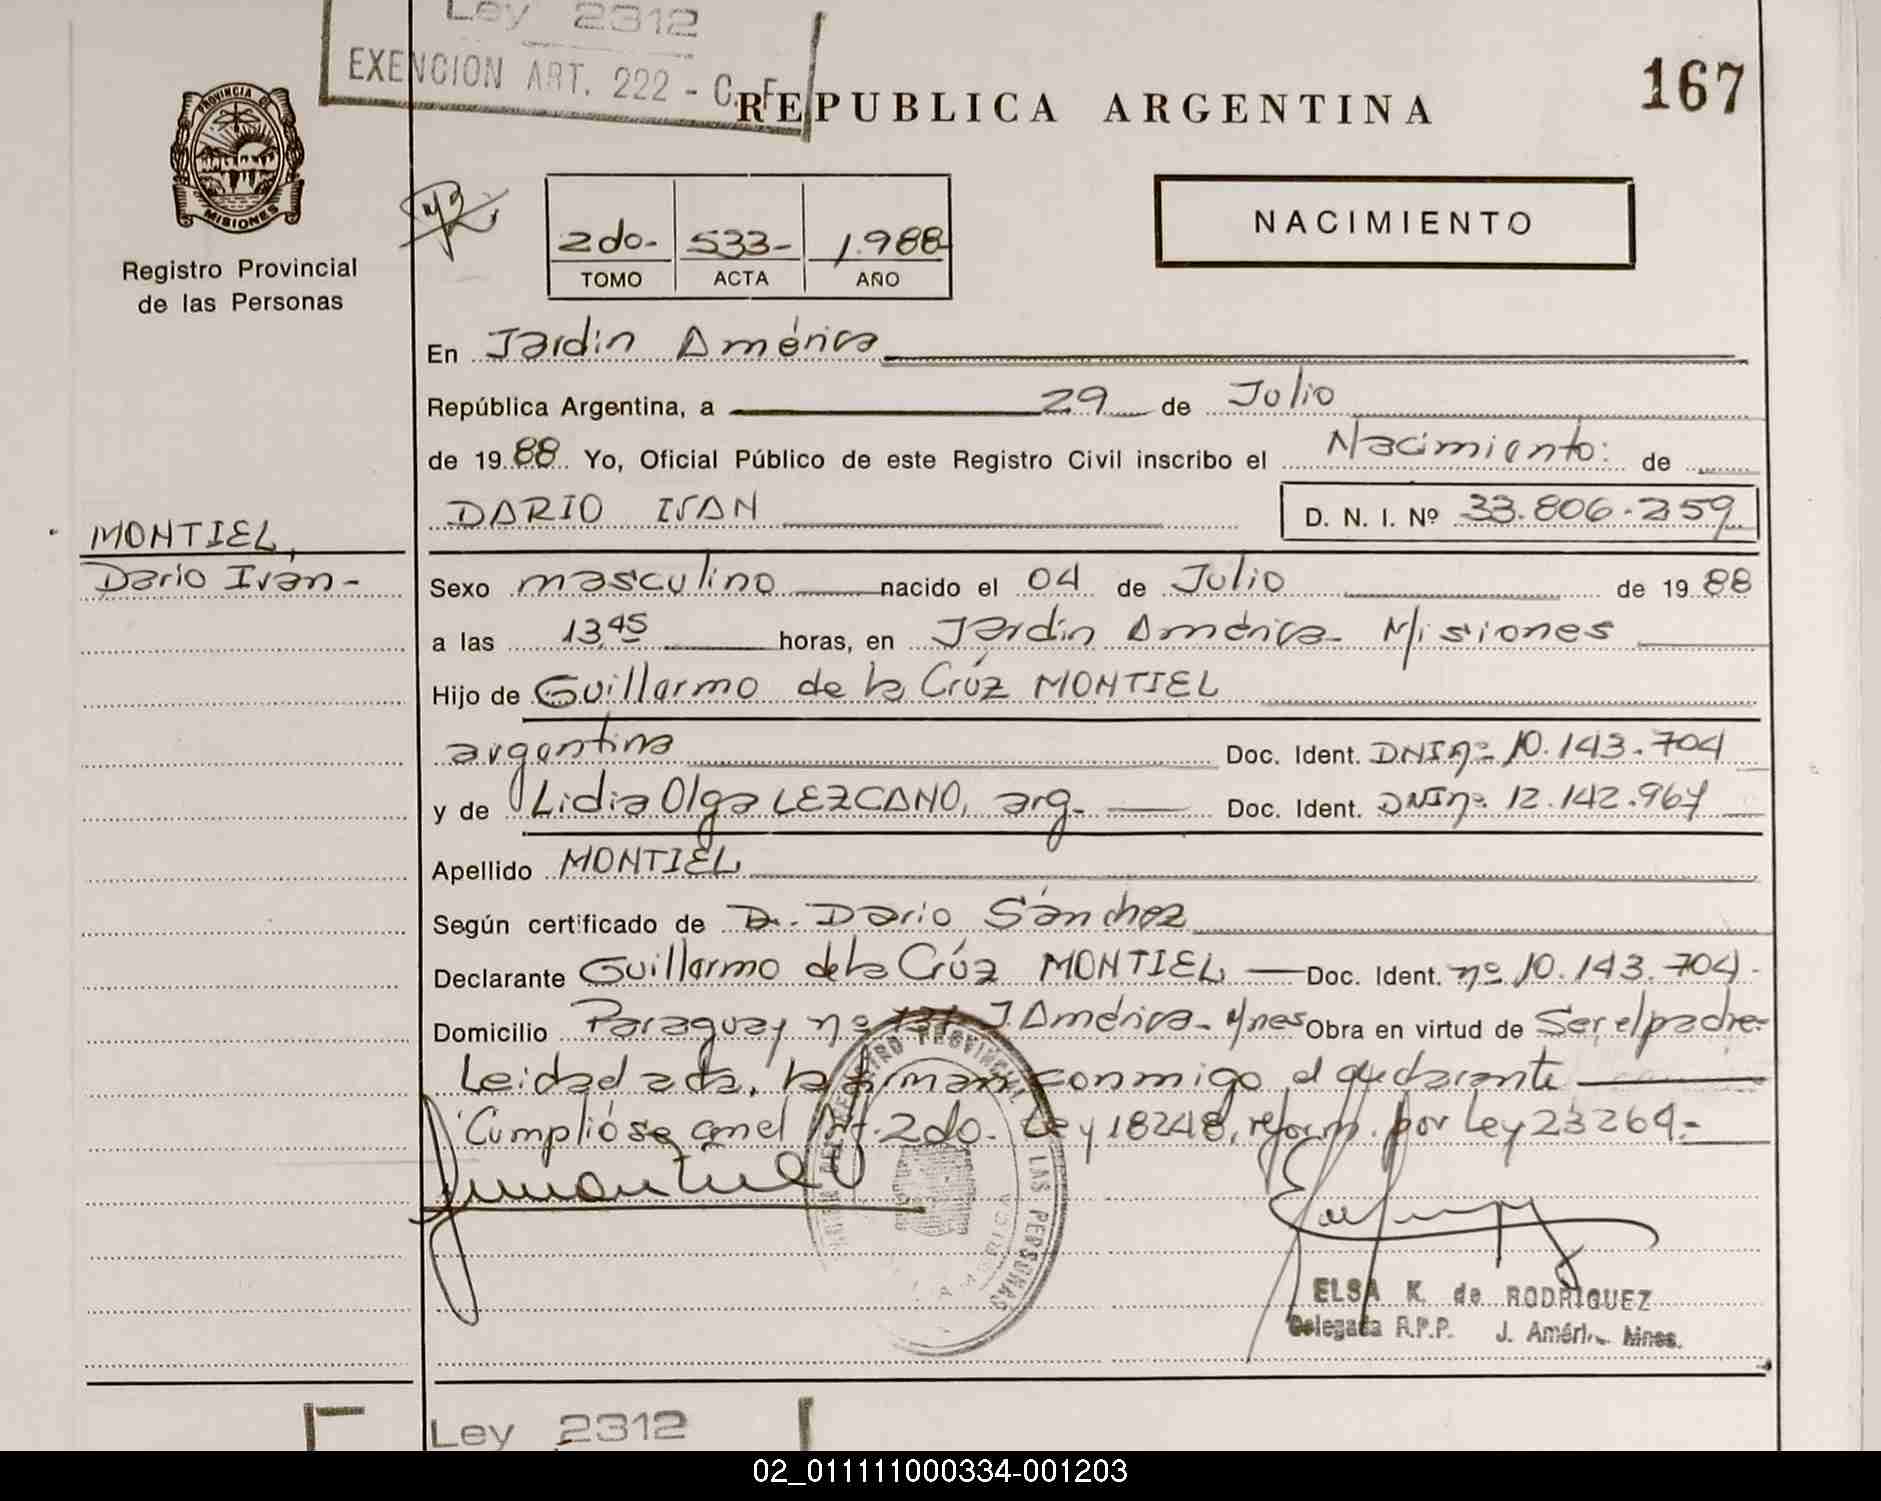 Ley 2312
EXENCION ART. 222 - C. F.
REPUBLICA ARGENTINA
167
PROVINCIA DE
MISIONES
Registro Provincial
de las Personas
2do- 533- 1.988
TOMO ACTA AÑO
NACIMIENTO
En Jardín América
República Argentina, a 29 de Julio
de 1988 Yo, Oficial Público de este Registro Civil inscribo el Nacimiento: de
DARIO IVAN D. N. I. Nº 33.806.259
MONTIEL,
Darío Iván-
Sexo masculino nacido el 04 de Julio de 1988
a las 13,45 horas, en Jardín América- Misiones
Hijo de Guillermo de la Crúz MONTIEL
argentina Doc. Ident. DNI nº 10.143.704
y de Lidia Olga LEZCANO, arg. Doc. Ident. DNI nº 12.142.967
Apellido MONTIEL
Según certificado de D. Dario Sánchez
Declarante Guillermo de la Crúz MONTIEL Doc. Ident. nº 10.143.704-
Domicilio Paraguay nº 131 J. América- Mnes Obra en virtud de Ser el padre-
Leída el acta, la firman conmigo el declarante
Cumplióse con el Art. 2do. Ley 18248, reform. por Ley 23264.-
REGISTRO PROVINCIAL DE LAS PERSONAS
ELSA K. de RODRIGUEZ
Delegada R.P.P. J. Améri Mnes.
Ley 2312
02_011111000334-001203